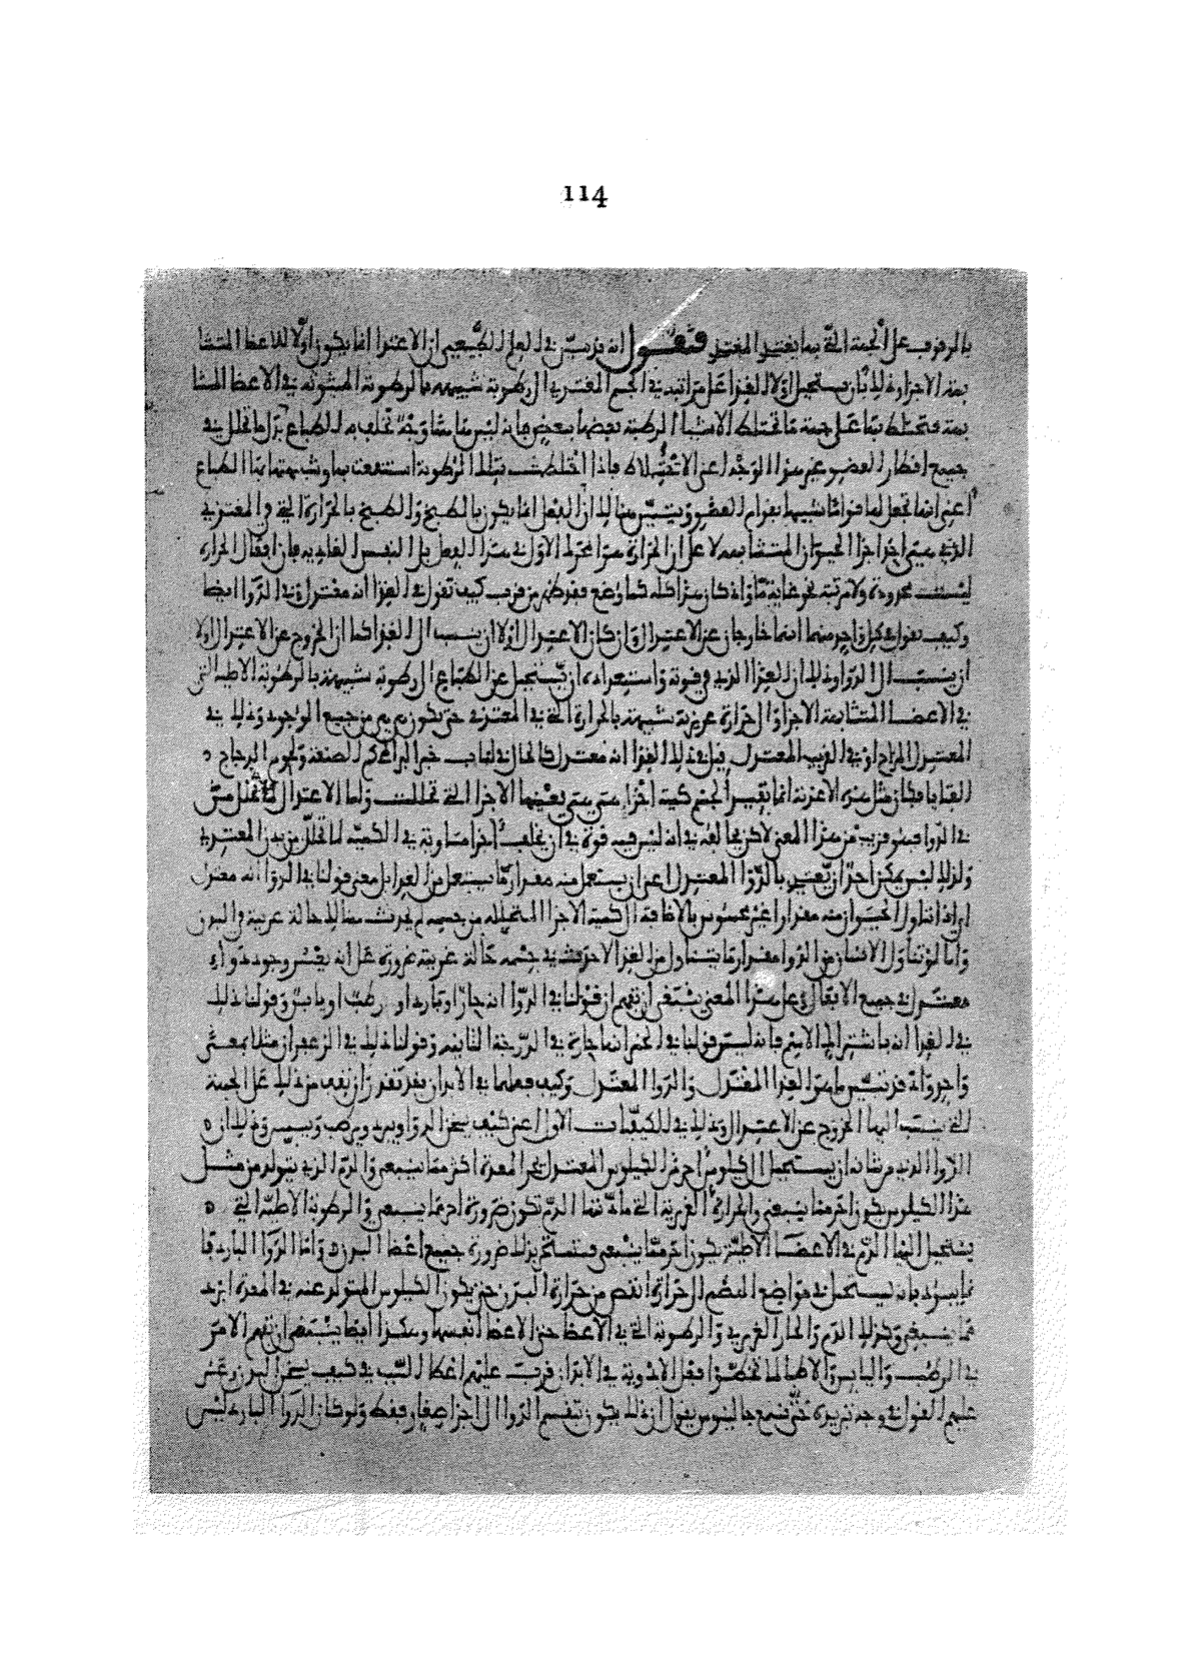 114
بالوقوف على الجهة التي بها يغتذي المغتذي فنقول انه قد تبين في العلم الطبيعي ان الاغتذا انما يكون اولا للاعضا المتشا
بهة الاجزا وذلك بان يستحيل اولا الغذا على مراتبه في الجسم المغتذي الى رطوبة شبيهة بالرطوبة المبثوثة في الاعضا المتشا
بهة فتختلط بها على جهة ما تختلط الاشيا الرطبة بعضها ببعض فانه ليس هاهنا وجه تخلف به الطباع بدل ما تحلل في
جميع اقطار العضو غير هذا الوجه اعني الاختلاط فاذا اختلطت بتلك الرطوبة استنقعت بها وشبهتها بها الطباع
اعني انها تجعل لها قواما شبيها بقوام العضو ويتبين هنالك ان الفعل انما يكون بالطبخ والطبخ بالحرارة التي في المغتذي
الذي هي اجزا الحيوان المتشابهة لا على ان الحرارة هي المحرك الاول في هذا الفعل بل النفس الغاذية فان افعال الحرارة
ليست محدودة ولا مرتبة نحو غاية ما واذ كان هذا كله كما وضع فقد ظهر من قرب كيف نقول في الغذا انه معتدل وفي الدوا ايضا
وكيف نقول في كل واحد منهما انهما خارجان عن الاعتدال وان كان الاعتدال اولا ان ينسب الى الغذا كما ان الخروج عن الاعتدال اولا
ان ينسب الى الدوا وذلك ان الغذا الذي في قوته واستعداده ان يستحيل عن الطباع الى رطوبة شبيهة بالرطوبة الاصلية التي
في الاعضا المتشابهة الاجزا والى حرارة غريزية شبيهة بالحرارة التي في المغتذي حتى تكون هي هي من جميع الوجوه وذلك في
المعتدل المزاج او في القريب المعتدل قيل في ذلك الغذا انه معتدل كالحال في لباب خبز البر المحكم الصنعة ولحوم الدجاج
الفتايا فكان مثل هذه الاغذية انما يفيد الجسم كمية اجزا هي هي بعينها الاجزا التي تحللت واما الاعتدال
في الدوا فهو قريب من هذا المعنى لاكن يخالفه في انه ليس فيه قوة في ان يخلف اجزا مساوية في الكمية لما تحلل من بدن المغتذي
ولذلك ليس يمكن احدا ان يغتذي بالدوا المعتدل اعني ان يستعمل منه مقدار ما يستعمل من الغذا بل معنى قولنا في الدوا انه معتدل
اي اذا تناول الحيوان منه مقدارا غير محسوس بالاضافة الى كمية الاجزا المتحللة من جسمه لم يحدث هنالك حالة غريبة في البدن
واما لو تناول الانسان من الدوا مقدار ما يتناول من الغذا لاحدث في جسمه حالة غريبة ضرورة على انه يعسر وجود دواء
معتدل في جميع الافعال وعلى هذا المعنى ينبغي ان نفهم من قولنا في الدوا انه حار او بارد او رطب او يابس وقولنا ذلك
في الغذا انه باشتراك الاسم فانه ليس قولنا في الخبز انها حارة في الدرجة الثانية وقولنا ذلك في الزعفران مثلا بمعنى
واحد واذ قد تبين ما هو الغذا المعتدل والدوا المعتدل وكيف فعلهما في الابدان فقد نقدر ان نقف من ذلك على الجهة
التي ينسب اليها الخروج عن الاعتدال وذلك في الكيفيات الاول اعني كيف يسخن الدوا ويبرد ويرطب وييبس وذلك ان
الدوا الذي من شانه ان يستحيل الى كيلوس احر من الكيلوس المعتدل يحر المعدة اكثر مما ينبغي والدم الذي يتولد من مثل
هذا الكيلوس يكون احر مما ينبغي والحرارة الغريزية التي مادتها الدم تكون ضرورة احر مما ينبغي والرطوبة الاصلية التي
يستحيل اليها الدم في الاعضا الاصلية يكون احر مما ينبغي فتسخن بذلك ضرورة جميع اعضا البدن واما الدوا البارد فا
نما يبرد بانه ليستحيل في مواضع الهضم الى حرارة انقص من حرارة البدن حتى يكون الكيلوس المتولد عنه في المعدة ابرد
مما ينبغي وكذلك الدم والحار الغريزي والرطوبة التي في الاعضا حتى الاعضا انفسها وهكذا ايضا ينبغي ان تفهم الامر
في الرطب واليابس والاطبا لما تحصوا فعل الادوية في الابدان قربت عليهم اعطا السبب في كيف يسخن البدن وعسر
عليهم القول في وجه تبريده حتى تسمع جالينوس يقول ان ذلك يكون بتقسيم الدوا الى اجزا صغار فقط ولو كان الدوا البارد ليس